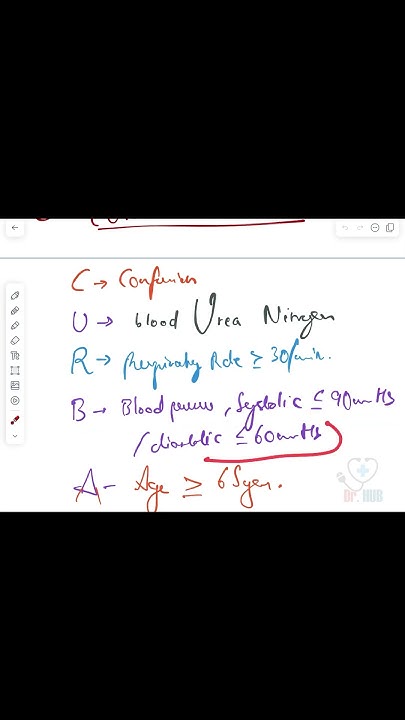 C → Confusion
U → blood Urea Nitrogen
R → Respiratory Rate ≥ 30/min.
B → Blood pressure, Systolic ≤ 90mmHg
/diastolic ≤ 60mmHg
A - Age ≥ 65 year.
DR. HUB